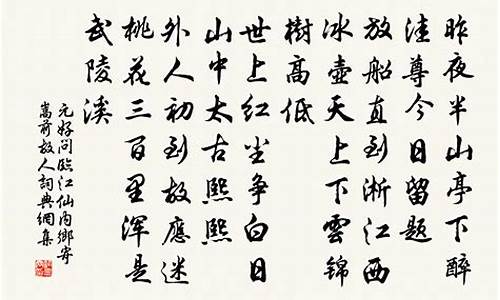 昨夜半山亭下醉
洼尊今日留題
放船直到淅江西
冰壺天上下雲錦
樹高低
世上红尘争白日
山中太古熙熙
外人初到故應迷
桃花三百里浑是
武陵溪
元好问臨江仙内鄉寄
嵩前故人詞典網集